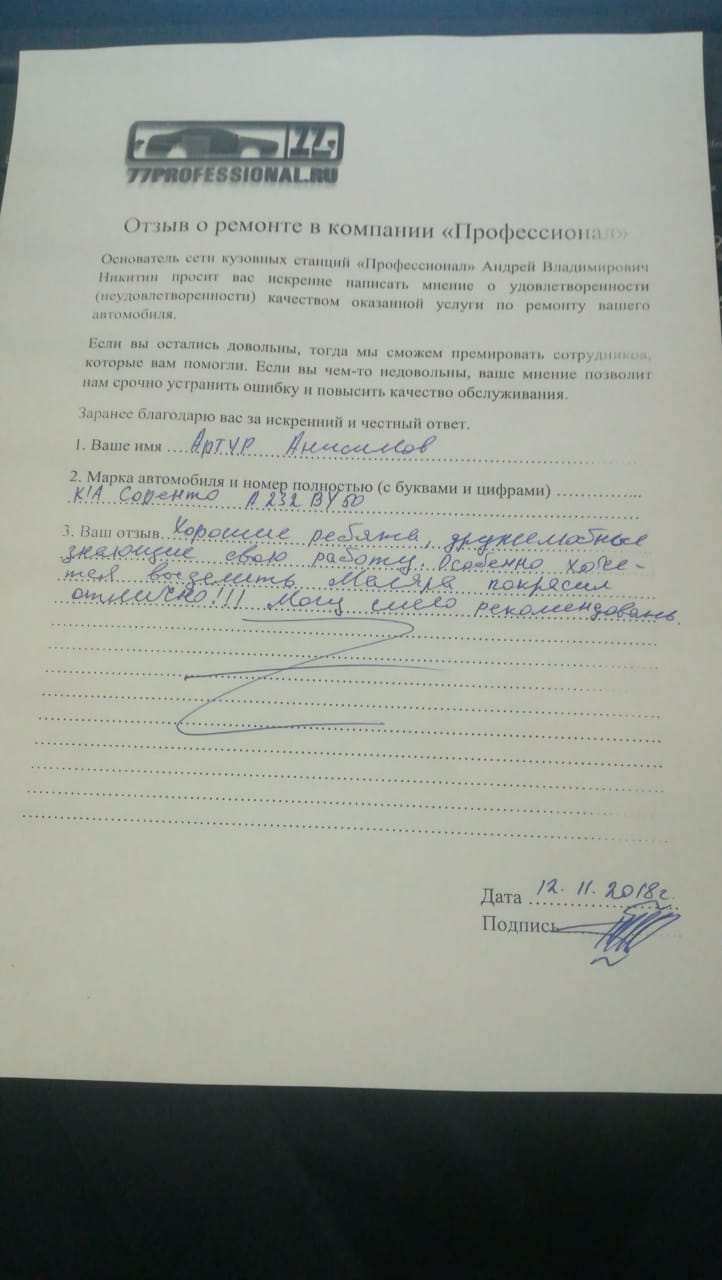 77
77PROFESSIONAL.RU
Отзыв о ремонте в компании «Профессионал»
Основатель сети кузовных станций «Профессионал» Андрей Владимирович
Никитин просит вас искренне написать мнение о удовлетворенности
(неудовлетворенности) качеством оказанной услуги по ремонту вашего
автомобиля.
Если вы остались довольны, тогда мы сможем премировать сотрудников,
которые вам помогли. Если вы чем-то недовольны, ваше мнение позволит
нам срочно устранить ошибку и повысить качество обслуживания.
Заранее благодарю вас за искренний и честный ответ.
1. Ваше имя Артур Анисимов
2. Марка автомобиля и номер полностью (с буквами и цифрами)
KIA Соренто А 232 ВУ 50
3. Ваш отзыв Хорошие ребята, дружелюбные
знающие свою работу. Особенно хоче-
тся выделить Маляра покрасил
отлично!!! Могу смело рекомендовать.
Дата 12.11.2018г.
Подпись